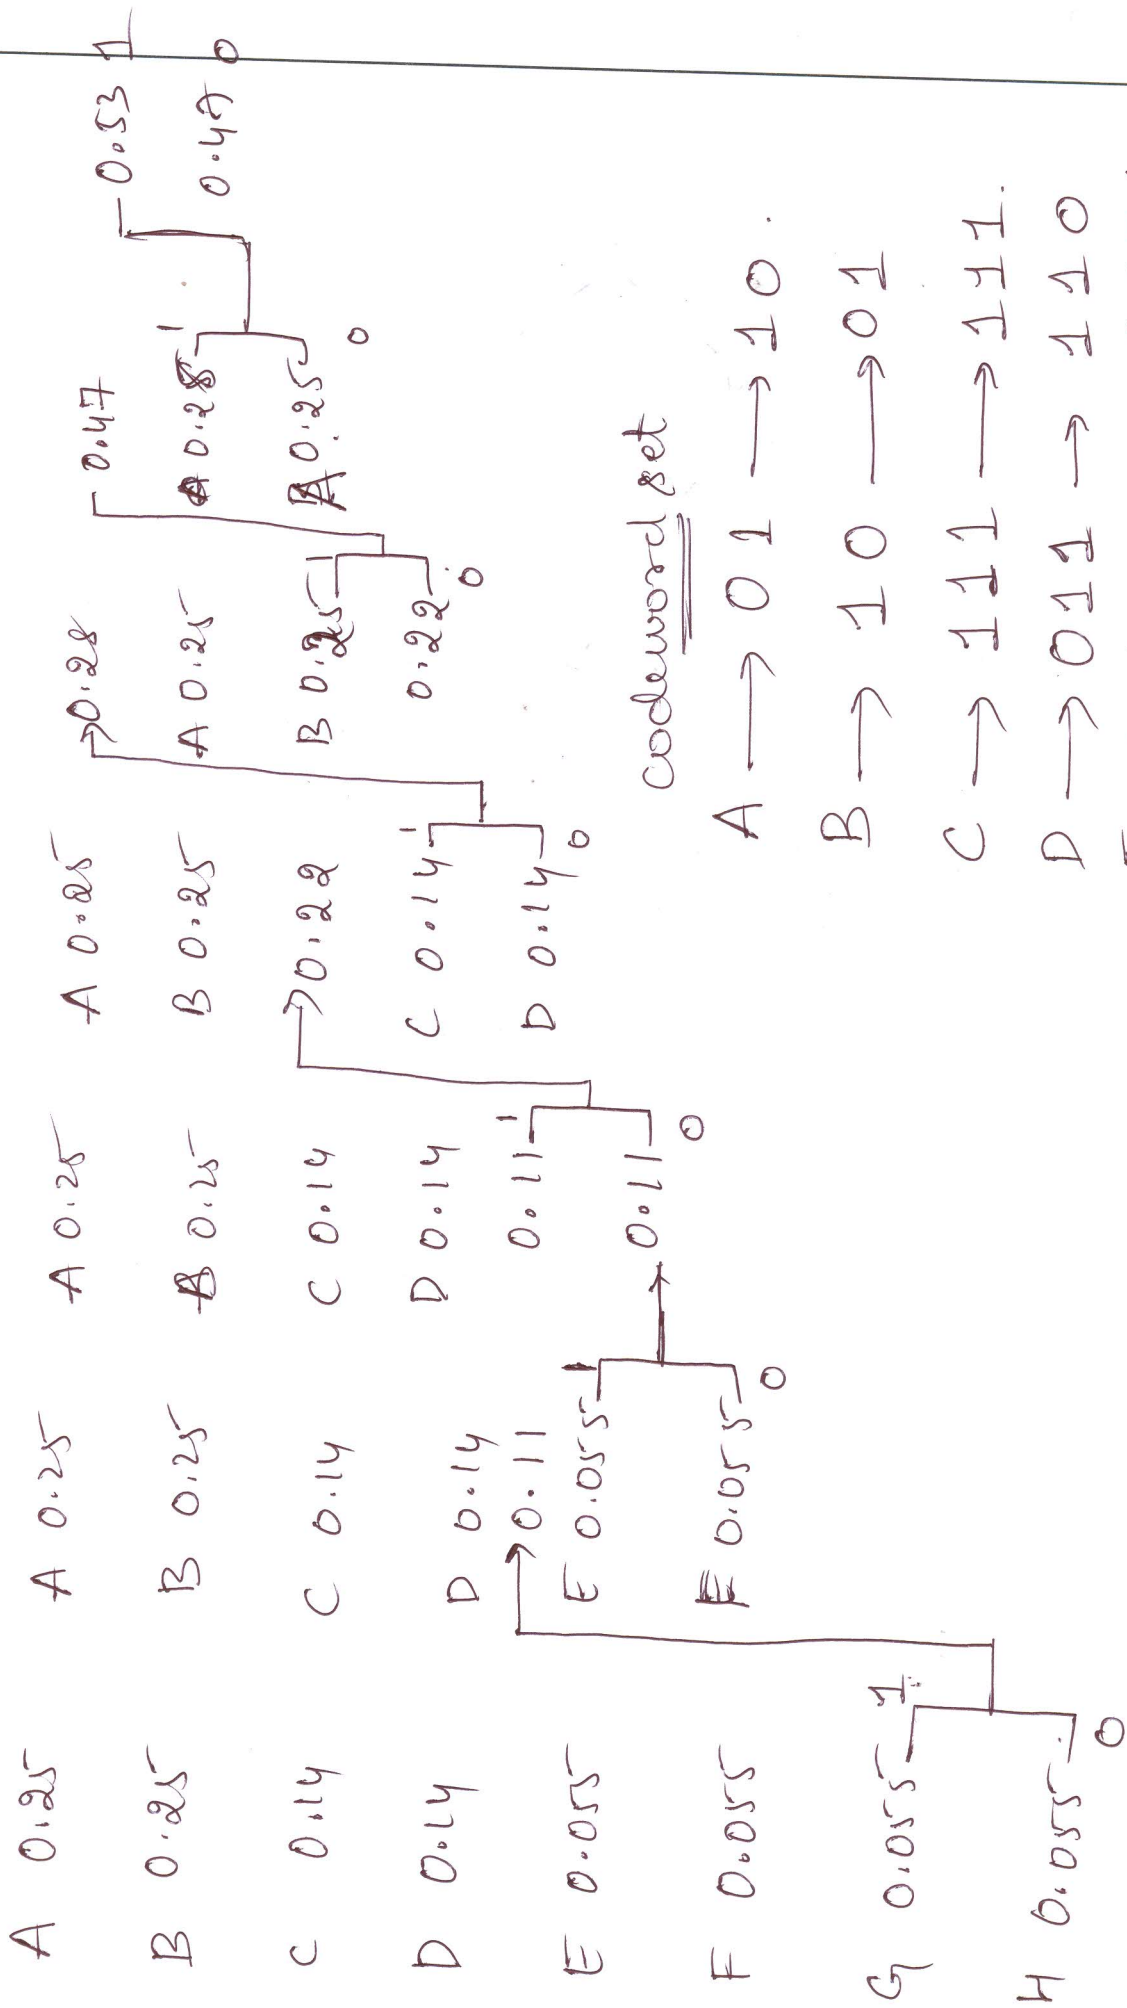 A 0.25
B 0.25
C 0.14
D 0.14
E 0.055
F 0.055
G 0.055
H 0.055
1
0
A 0.25
B 0.25
C 0.14
D 0.14
0.11
E 0.055
F 0.055
0
A 0.25
B 0.25
C 0.14
D 0.14
0.11
0.11
1
0
A 0.25
B 0.25
0.22
C 0.14
D 0.14
1
0
0.28
A 0.25
B 0.25
0.22
1
0
0.47
0.28
A 0.25
1
0
0.53 1
0.47 0
codeword set
A → 01 → 10.
B → 10 → 01
C → 111 → 111.
D → 011 → 110